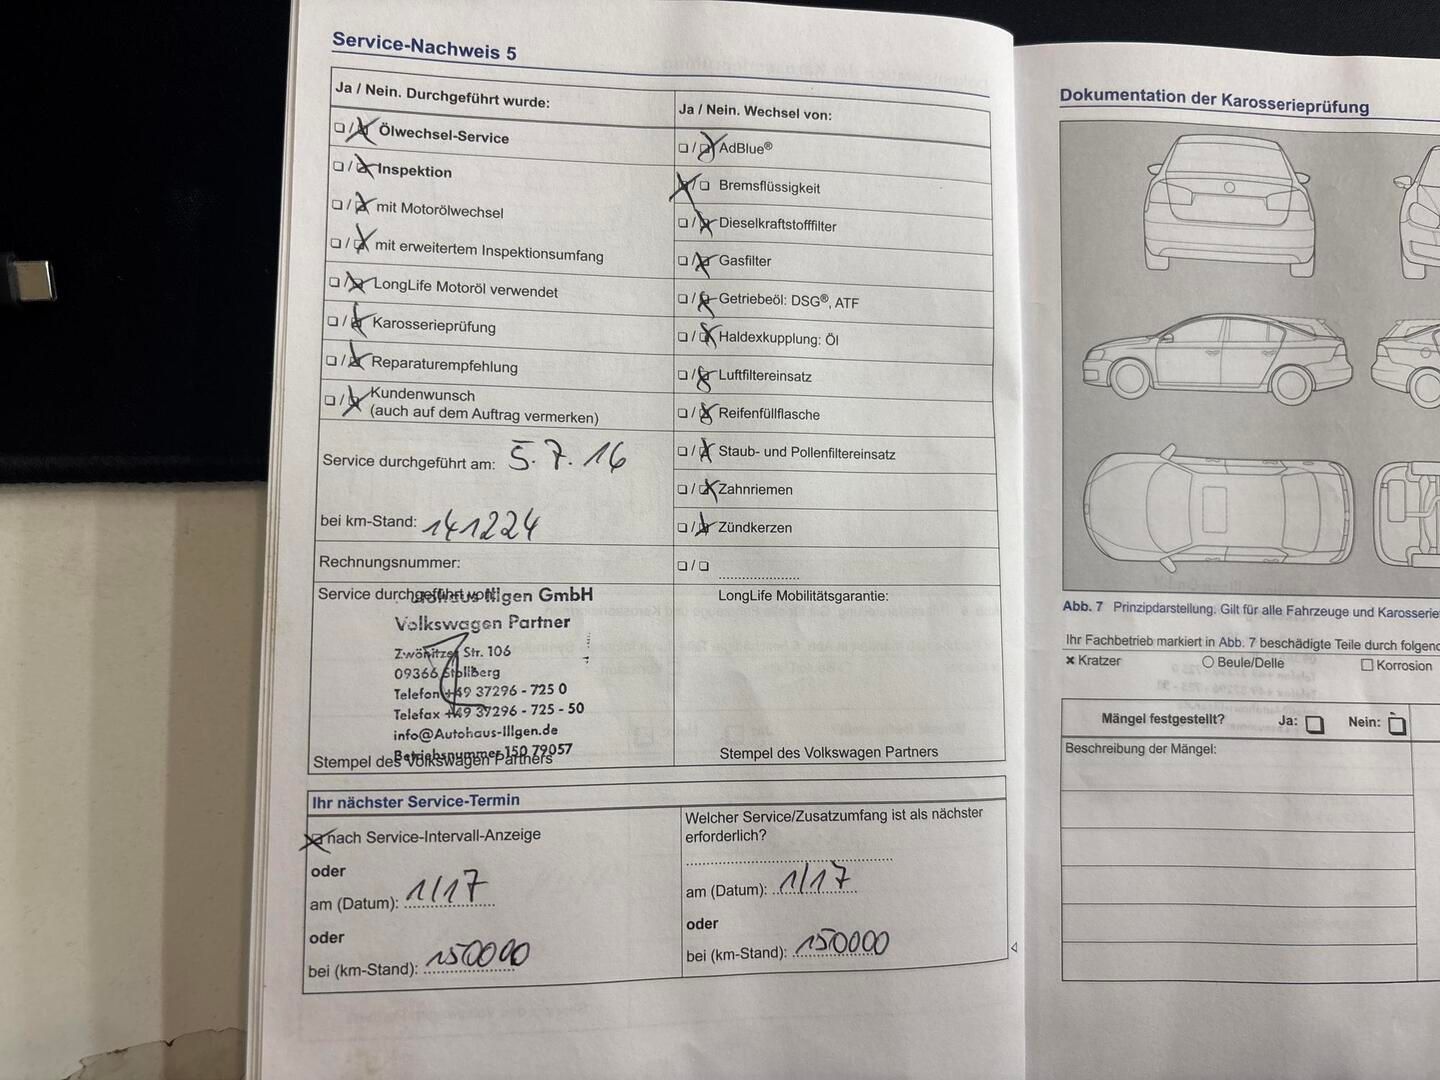 Service-Nachweis 5
Ja / Nein. Durchgeführt wurde:
Ölwechsel-Service
Inspektion
mit Motorölwechsel
mit erweitertem Inspektionsumfang
LongLife Motoröl verwendet
Karosserieprüfung
Reparaturempfehlung
Kundenwunsch
(auch auf dem Auftrag vermerken)
Service durchgeführt am: 5.7.16
bei km-Stand: 141224
Rechnungsnummer:
Service durchgeführt von:
Illgen GmbH
Volkswagen Partner
Zwönitzer Str. 106
09366 Stollberg
Telefon +49 37296 - 725 0
Telefax +49 37296 - 725 - 50
info@Autohaus-Illgen.de
Betriebsnummer 150 79057
Stempel des Volkswagen Partners
Ja / Nein. Wechsel von:
AdBlue®
Bremsflüssigkeit
Dieselkraftstofffilter
Gasfilter
Getriebeöl: DSG®, ATF
Haldexkupplung: Öl
Luftfiltereinsatz
Reifenfüllflasche
Staub- und Pollenfiltereinsatz
Zahnriemen
Zündkerzen
LongLife Mobilitätsgarantie:
Stempel des Volkswagen Partners
Ihr nächster Service-Termin
nach Service-Intervall-Anzeige
oder
am (Datum): 1/17
oder
bei (km-Stand): 150000
Welcher Service/Zusatzumfang ist als nächster
erforderlich?
am (Datum): 1/17
oder
bei (km-Stand): 150000
Dokumentation der Karosserieprüfung
Abb. 7 Prinzipdarstellung. Gilt für alle Fahrzeuge und Karosserie
Ihr Fachbetrieb markiert in Abb. 7 beschädigte Teile durch folgend
× Kratzer
Beule/Delle
Korrosion
Mängel festgestellt? Ja: Nein:
Beschreibung der Mängel: